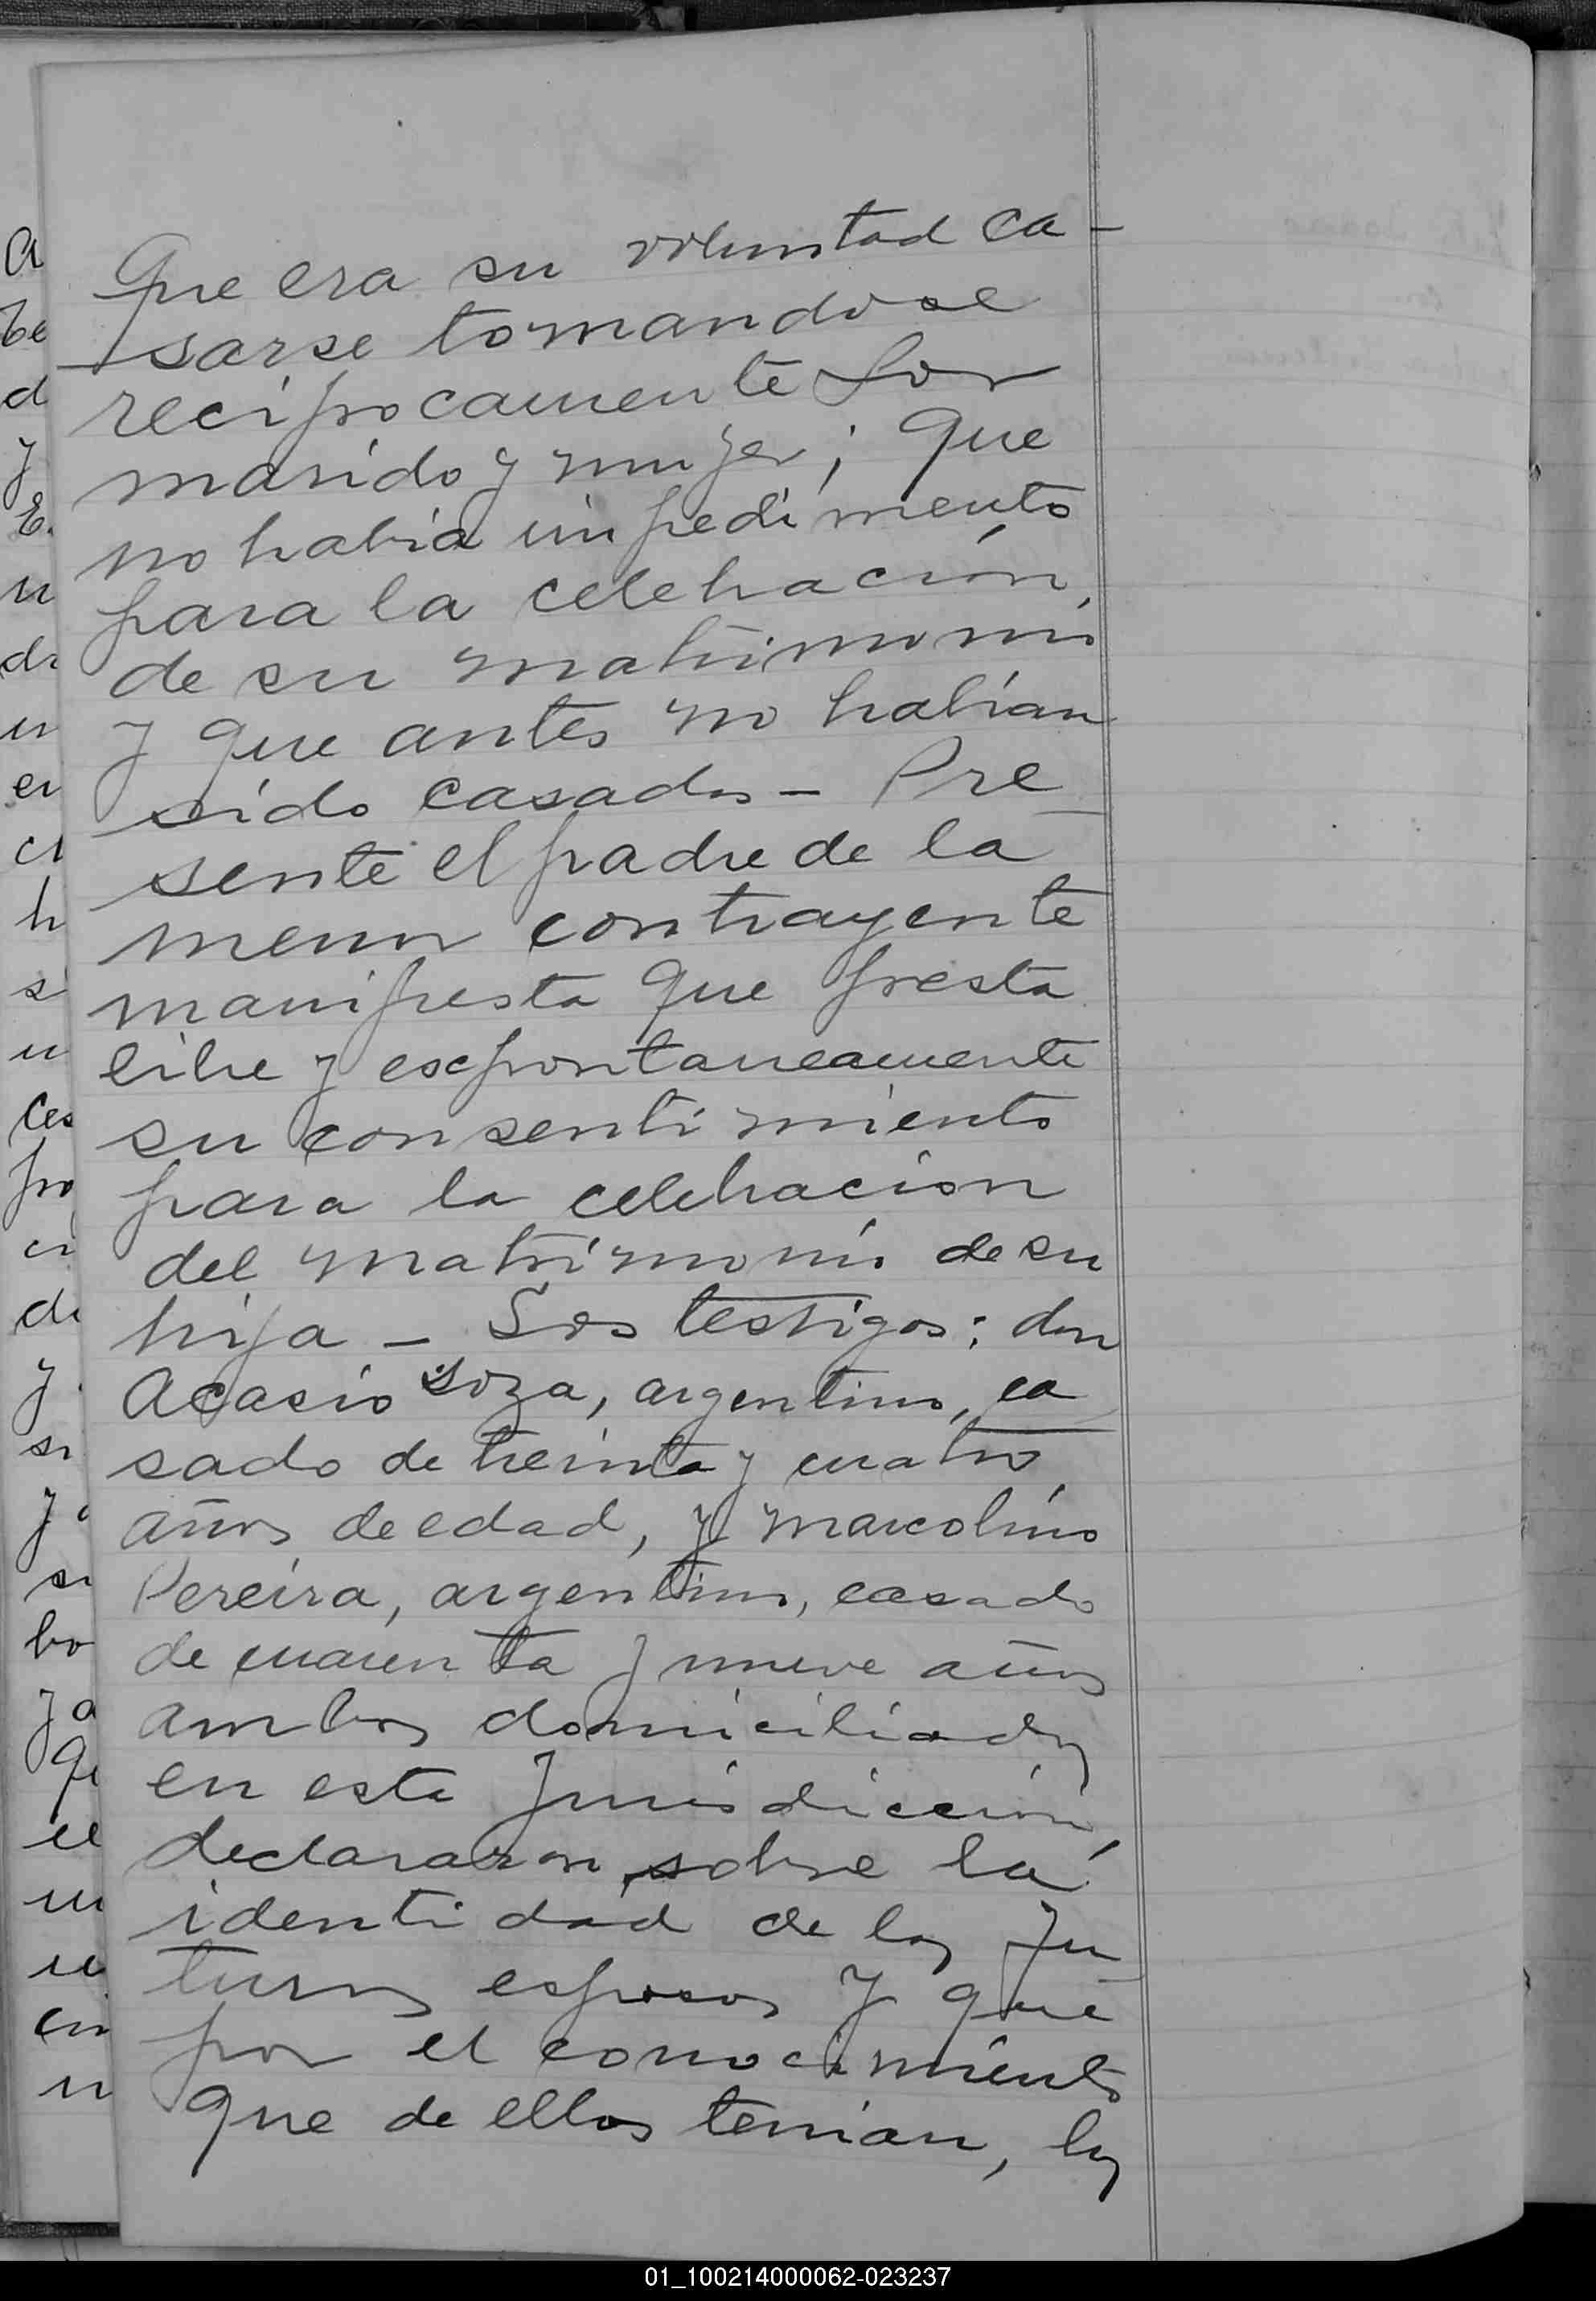 Que era su voluntad ca-
sarse tomandose
recíprocamente por
marido y mujer; que
no había impedimento
para la celebración,
de su matrimonio
y que antes no habían
sido casados - Pre
sente el padre de la
menor contrayente
manifiesta que presta
libre y espontaneamente
su consentimiento
para la celebración
del matrimonio de su
hija - Los testigos: don
Acasio Soza, argentino, ca
sado de treinta y cuatro
años de edad, y Marcolino
Pereira, argentino, casado
de cuarenta y nueve años
ambos domiciliados
en esta Jurisdicción,
declararon sobre la
identidad de los fu
turos esposos y que
por el conocimiento
que de ellos tenían, los
01_100214000062-023237